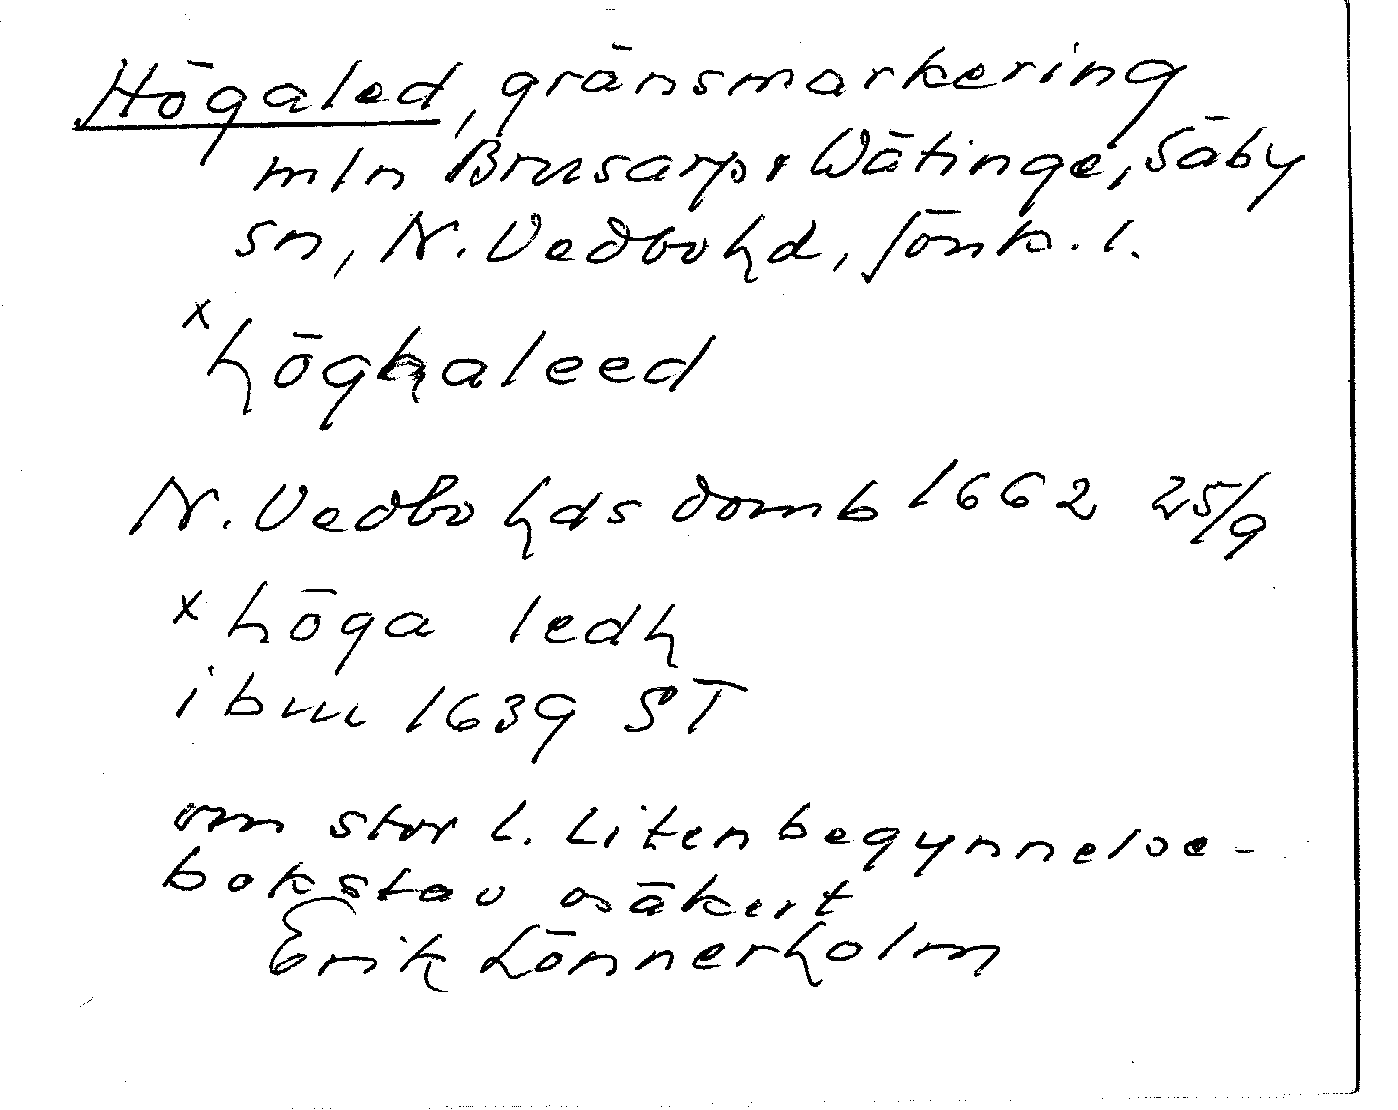 Högaled, gränsmarkering
mln Brusarp & Wätinge, Säby
sn, N. Vedbo hd, Jönk. l.
x höghaleed
N. Vedbo hds domb 1662 25/9
x höga ledh
ibm 1639 ST
om stor l. liten begynnelse-
bokstav osäkert
Erik Lönnerholm